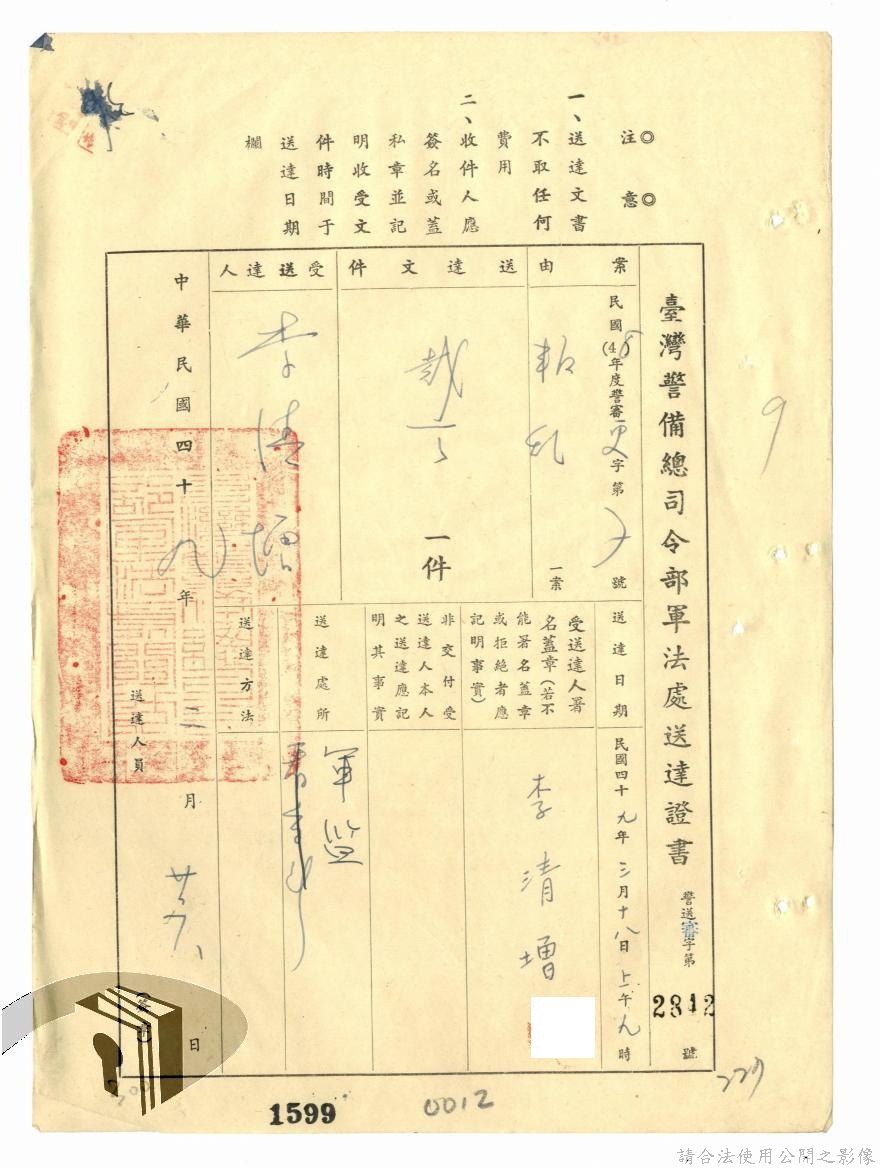 ◎注意◎
一、送達文書
不取任何
費用
二、收件人應
簽名或蓋
私章並記
明收受文
件時間于
送達日期
欄
9
臺灣警備總司令部軍法處送達證書
警送審字第2812號
案由
民國(48)年度警審更字第 號
叛亂
一案
送達文件
裁定
一件
受送達人
李清增
送達日期
民國四十九年三月十八日上午九時
受送達人署
名蓋章(若不
能署名蓋章
或拒絕者應
記明事實)
李清增
非交付受
送達人本人
之送達應記
明其事實
送達處所
軍監
送達方法
中華民國四十九年二月 日
送達人員
1599
0012
229
請合法使用公開之影像